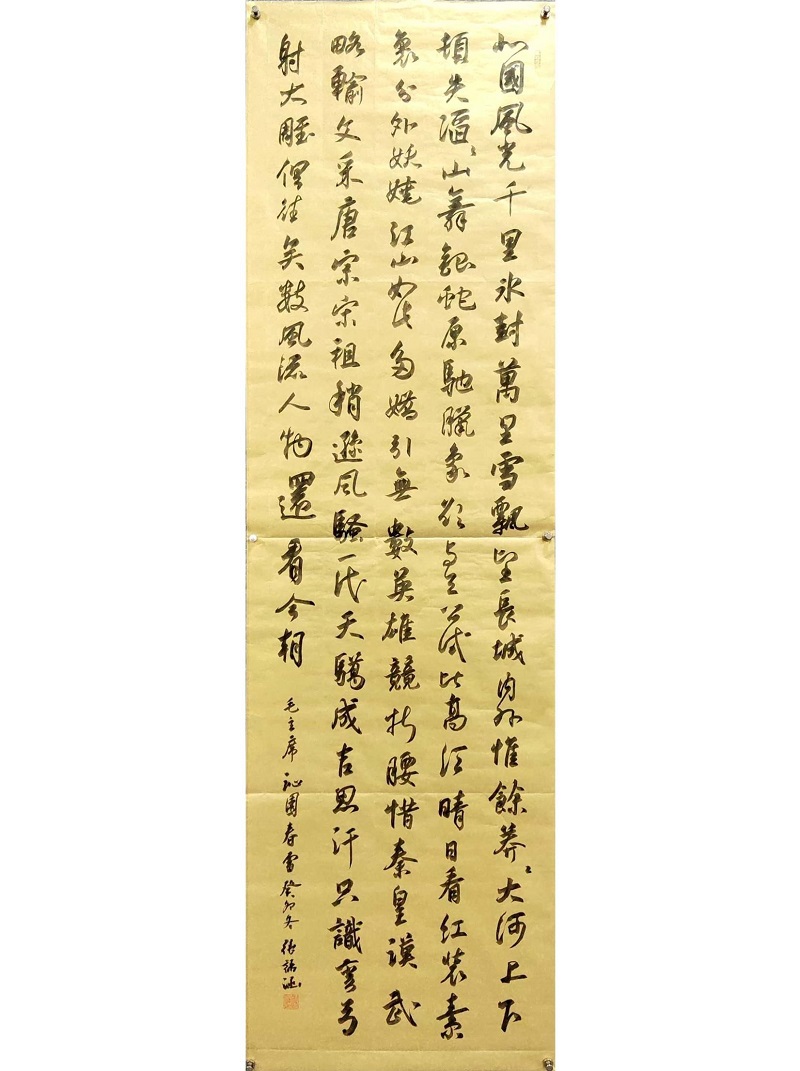 北國風光千里冰封萬里雪飄望長城內外惟餘莽〻大河上下
頓失滔〻山舞銀蛇原馳臘象欲與天公試比高須晴日看紅裝素
裹分外妖嬈江山如此多嬌引無數英雄競折腰惜秦皇漢武
略輸文采唐宗宋祖稍遜風騷一代天驕成吉思汗只識彎弓
射大雕俱往矣數風流人物還看今朝
毛主席沁園春雪癸卯冬張瑞涵